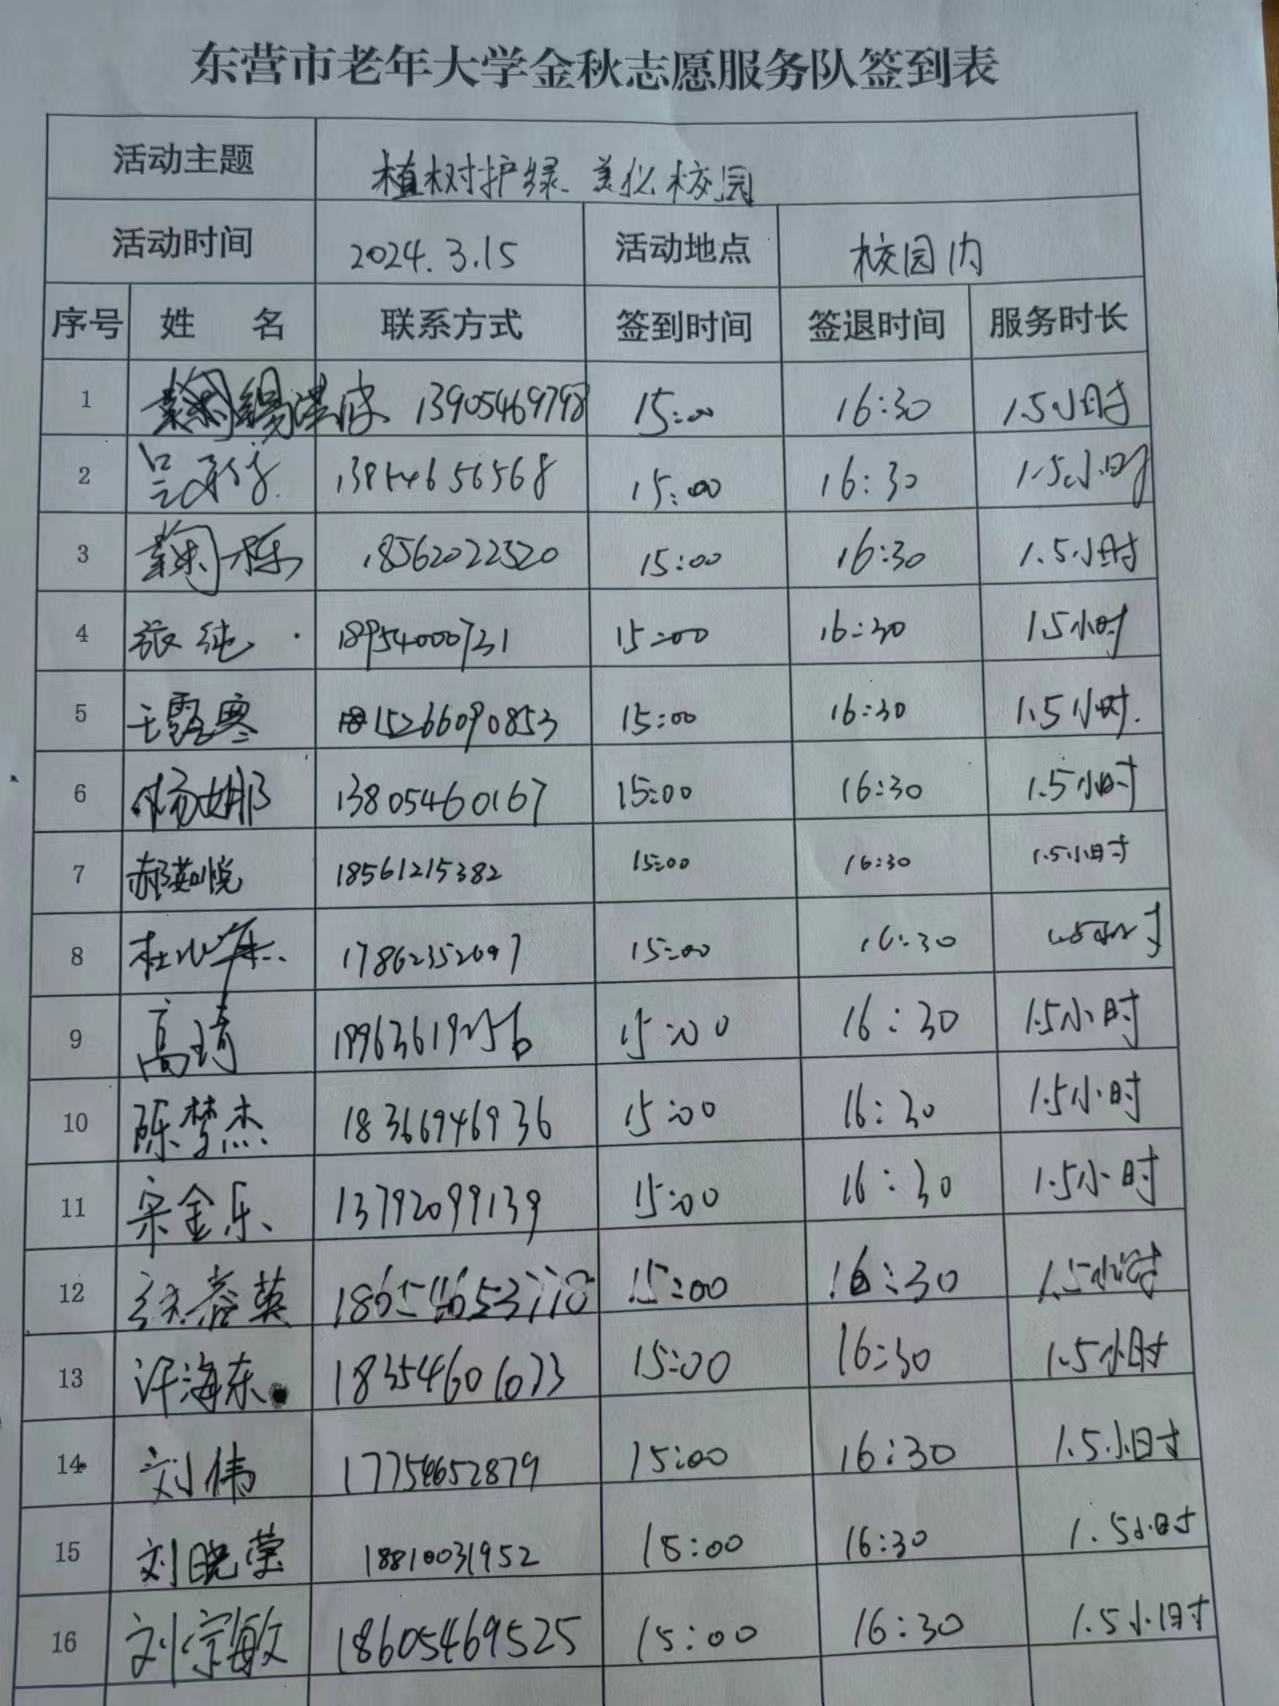 东营市老年大学金秋志愿服务队签到表
活动主题 植树护绿 美化校园
活动时间 2024.3.15 活动地点 校园内
序号 姓 名 联系方式 签到时间 签退时间 服务时长
1 13905469798 15:00 16:30 1.5小时
2 13854656568 15:00 16:30 1.5小时
3 18562022520 15:00 16:30 1.5小时
4 张纯 18954000731 15:00 16:30 1.5小时
5 王露寒 15266090853 15:00 16:30 1.5小时
6 杨娜 13805460167 15:00 16:30 1.5小时
7 郝茹悦 18561215382 15:00 16:30 1.5小时
8 15:00 16:30 1.5小时
9 高琦 15:00 16:30 1.5小时
10 陈梦杰 18366946936 15:00 16:30 1.5小时
11 宋金乐 13792099139 15:00 16:30 1.5小时
12 15:00 16:30 1.5小时
13 许海东 18354601673 15:00 16:30 1.5小时
14 刘伟 17754652879 15:00 16:30 1.5小时
15 刘晓莹 18810031952 15:00 16:30 1.5小时
16 刘宗敏 18605469525 15:00 16:30 1.5小时